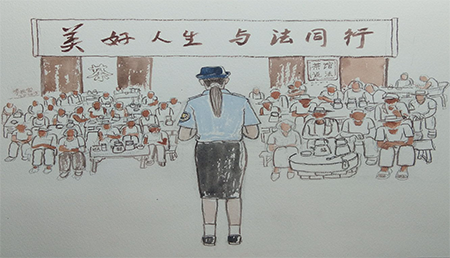 美好人生 与法同行
茶